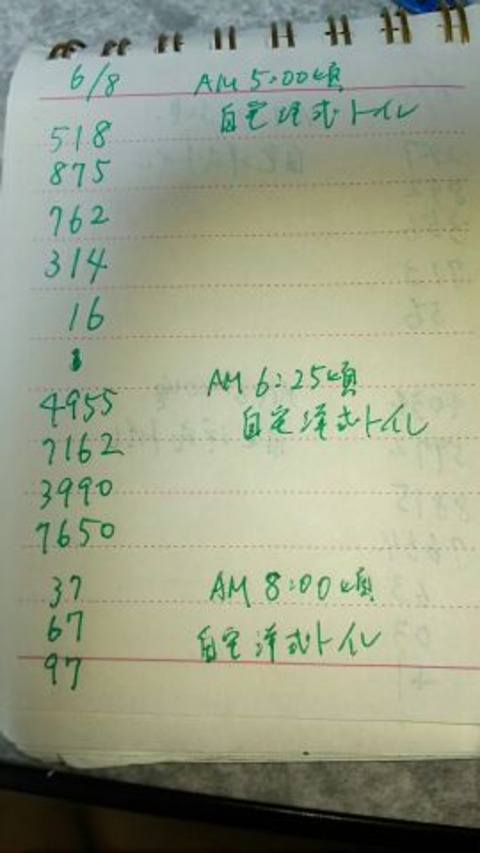 6/8 AM 5:00頃
自宅洋式トイレ
518
875
762
314
16
AM 6:25頃
4955
自宅洋式トイレ
7162
3990
7650
37 AM 8:00頃
67 自宅洋式トイレ
97